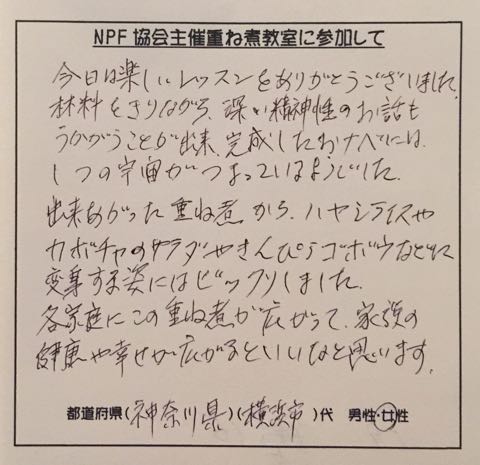 NPF 協会主催重ね煮教室に参加して
今日は楽しいレッスンをありがとうございました。
材料をきりながら、深い精神性のお話も
うかがうことが出来、完成したおナベには、
1つの宇宙がつまっているようでした。
出来あがった重ね煮から、ハヤシライスや
カボチャのサラダやきんぴらゴボウなどに
変身する姿にはビックリしました。
各家庭にこの重ね煮が広がって、家族の
健康や幸せが広がるといいなと思います。
都道府県(神奈川県)(横浜市 )代 男性・女性